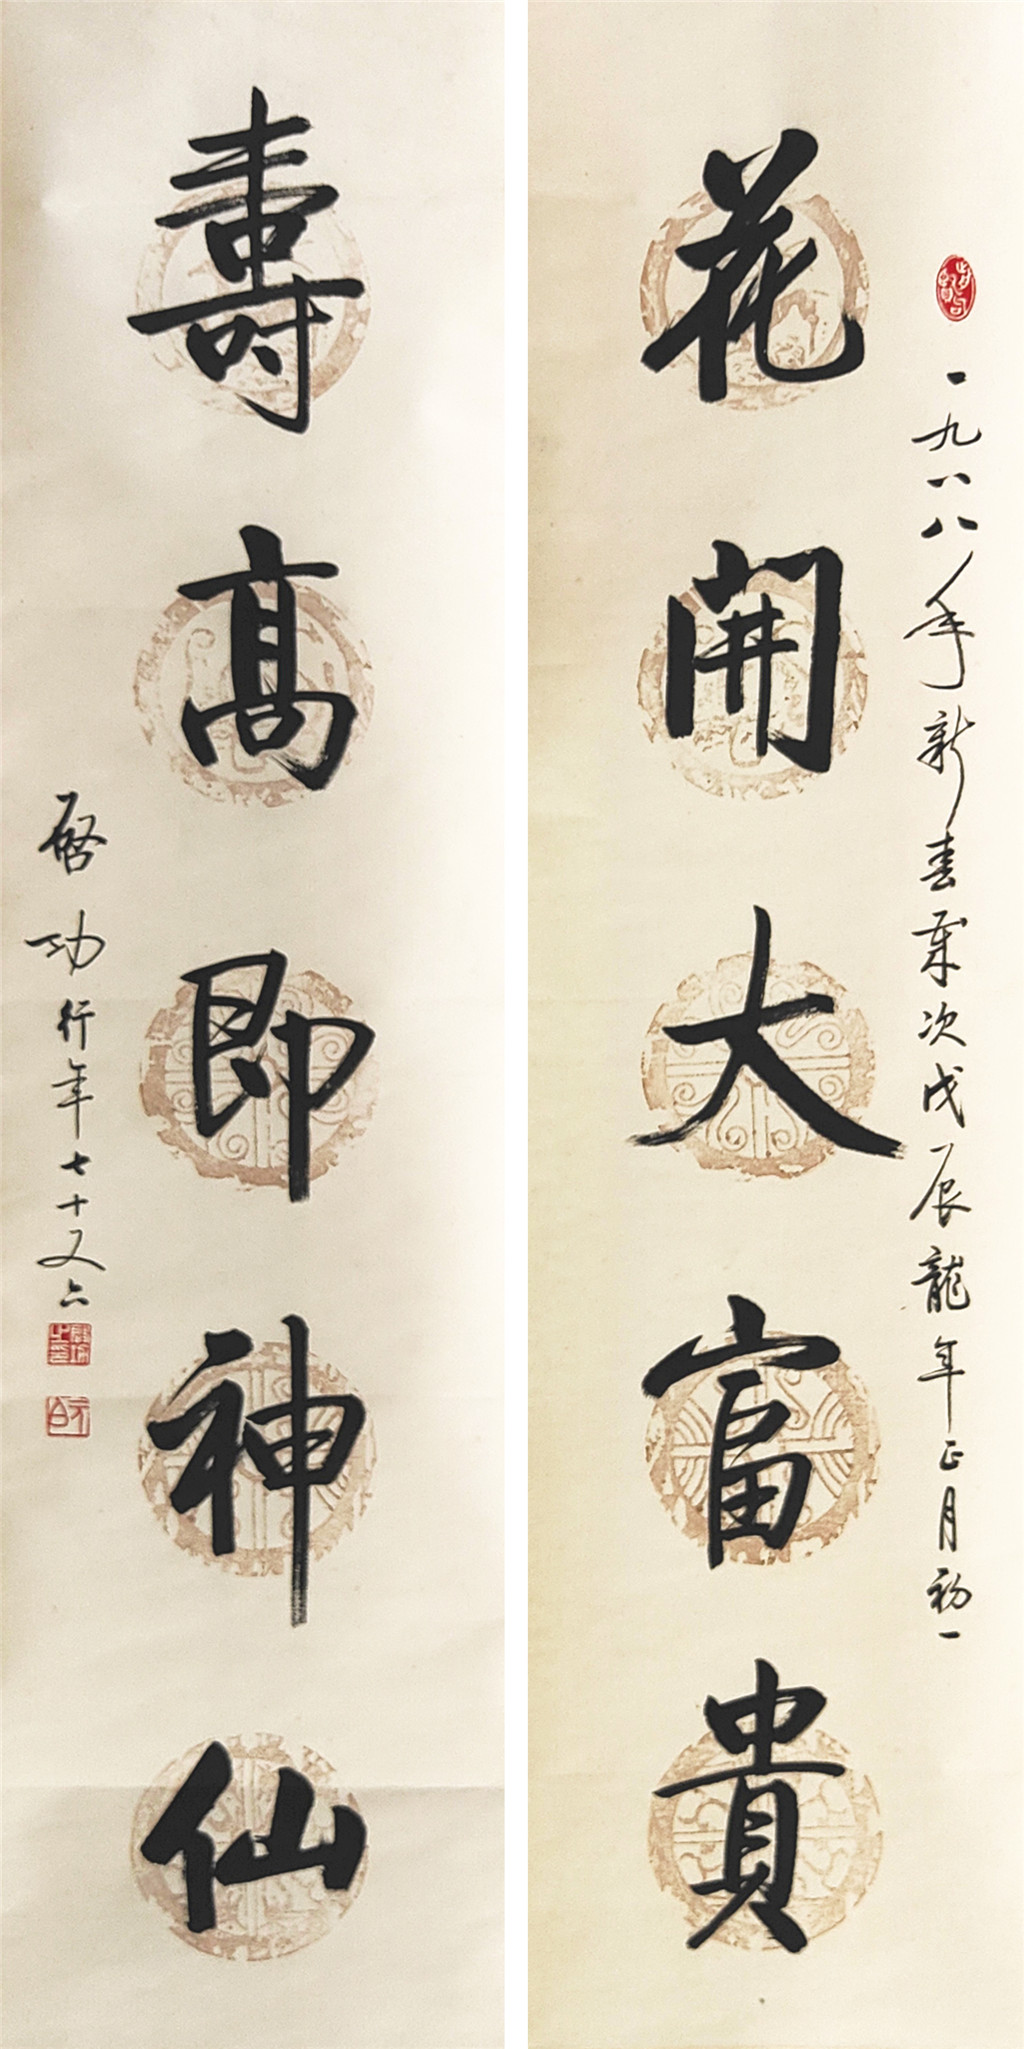 花開大富貴
一九八八年新春歲次戊辰龍年正月初一
壽高即神仙
啓功行年七十又六